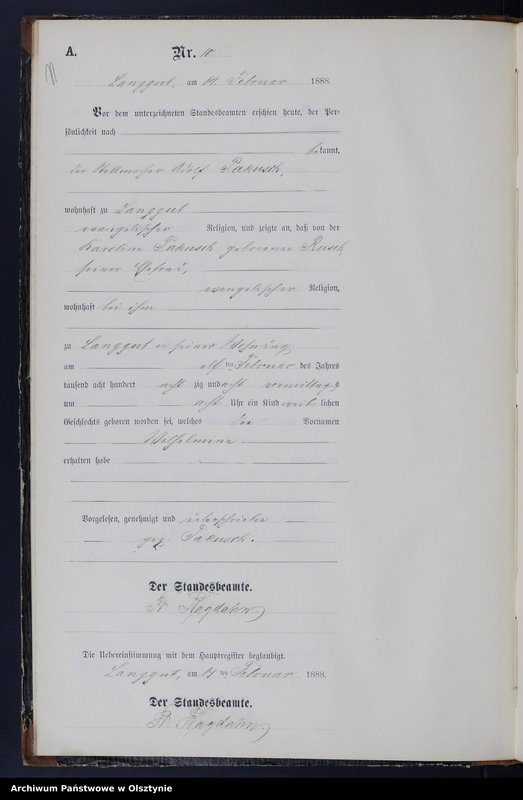 A. Nr. 10
Langgut, am 14. Februar 1888.
Vor dem unterzeichneten Standesbeamten erschien heute, der Per-
sönlichkeit nach
bekannt,
der Stellmacher Adolf Pakusch,
wohnhaft zu Langgut
evangelischer Religion, und zeigte an, daß von der
Karoline Pakusch geborenen
seiner Ehefrau,
evangelischer Religion,
wohnhaft bei ihm
zu Langgut in seiner Wohnung
am elf ten Februar des Jahres
tausend acht hundert acht zig und acht vormittags
um acht Uhr ein Kind weib lichen
Geschlechts geboren worden sei, welches den Vornamen
Wilhelmine
erhalten habe
Vorgelesen, genehmigt und unterschrieben
gez. Pakusch.
Der Standesbeamte.
Ragdahn
Die Uebereinstimmung mit dem Hauptregister beglaubigt.
Langgut, am 14 ten Februar 1888.
Der Standesbeamte.
Ragdahn
Archiwum Państwowe w Olsztynie